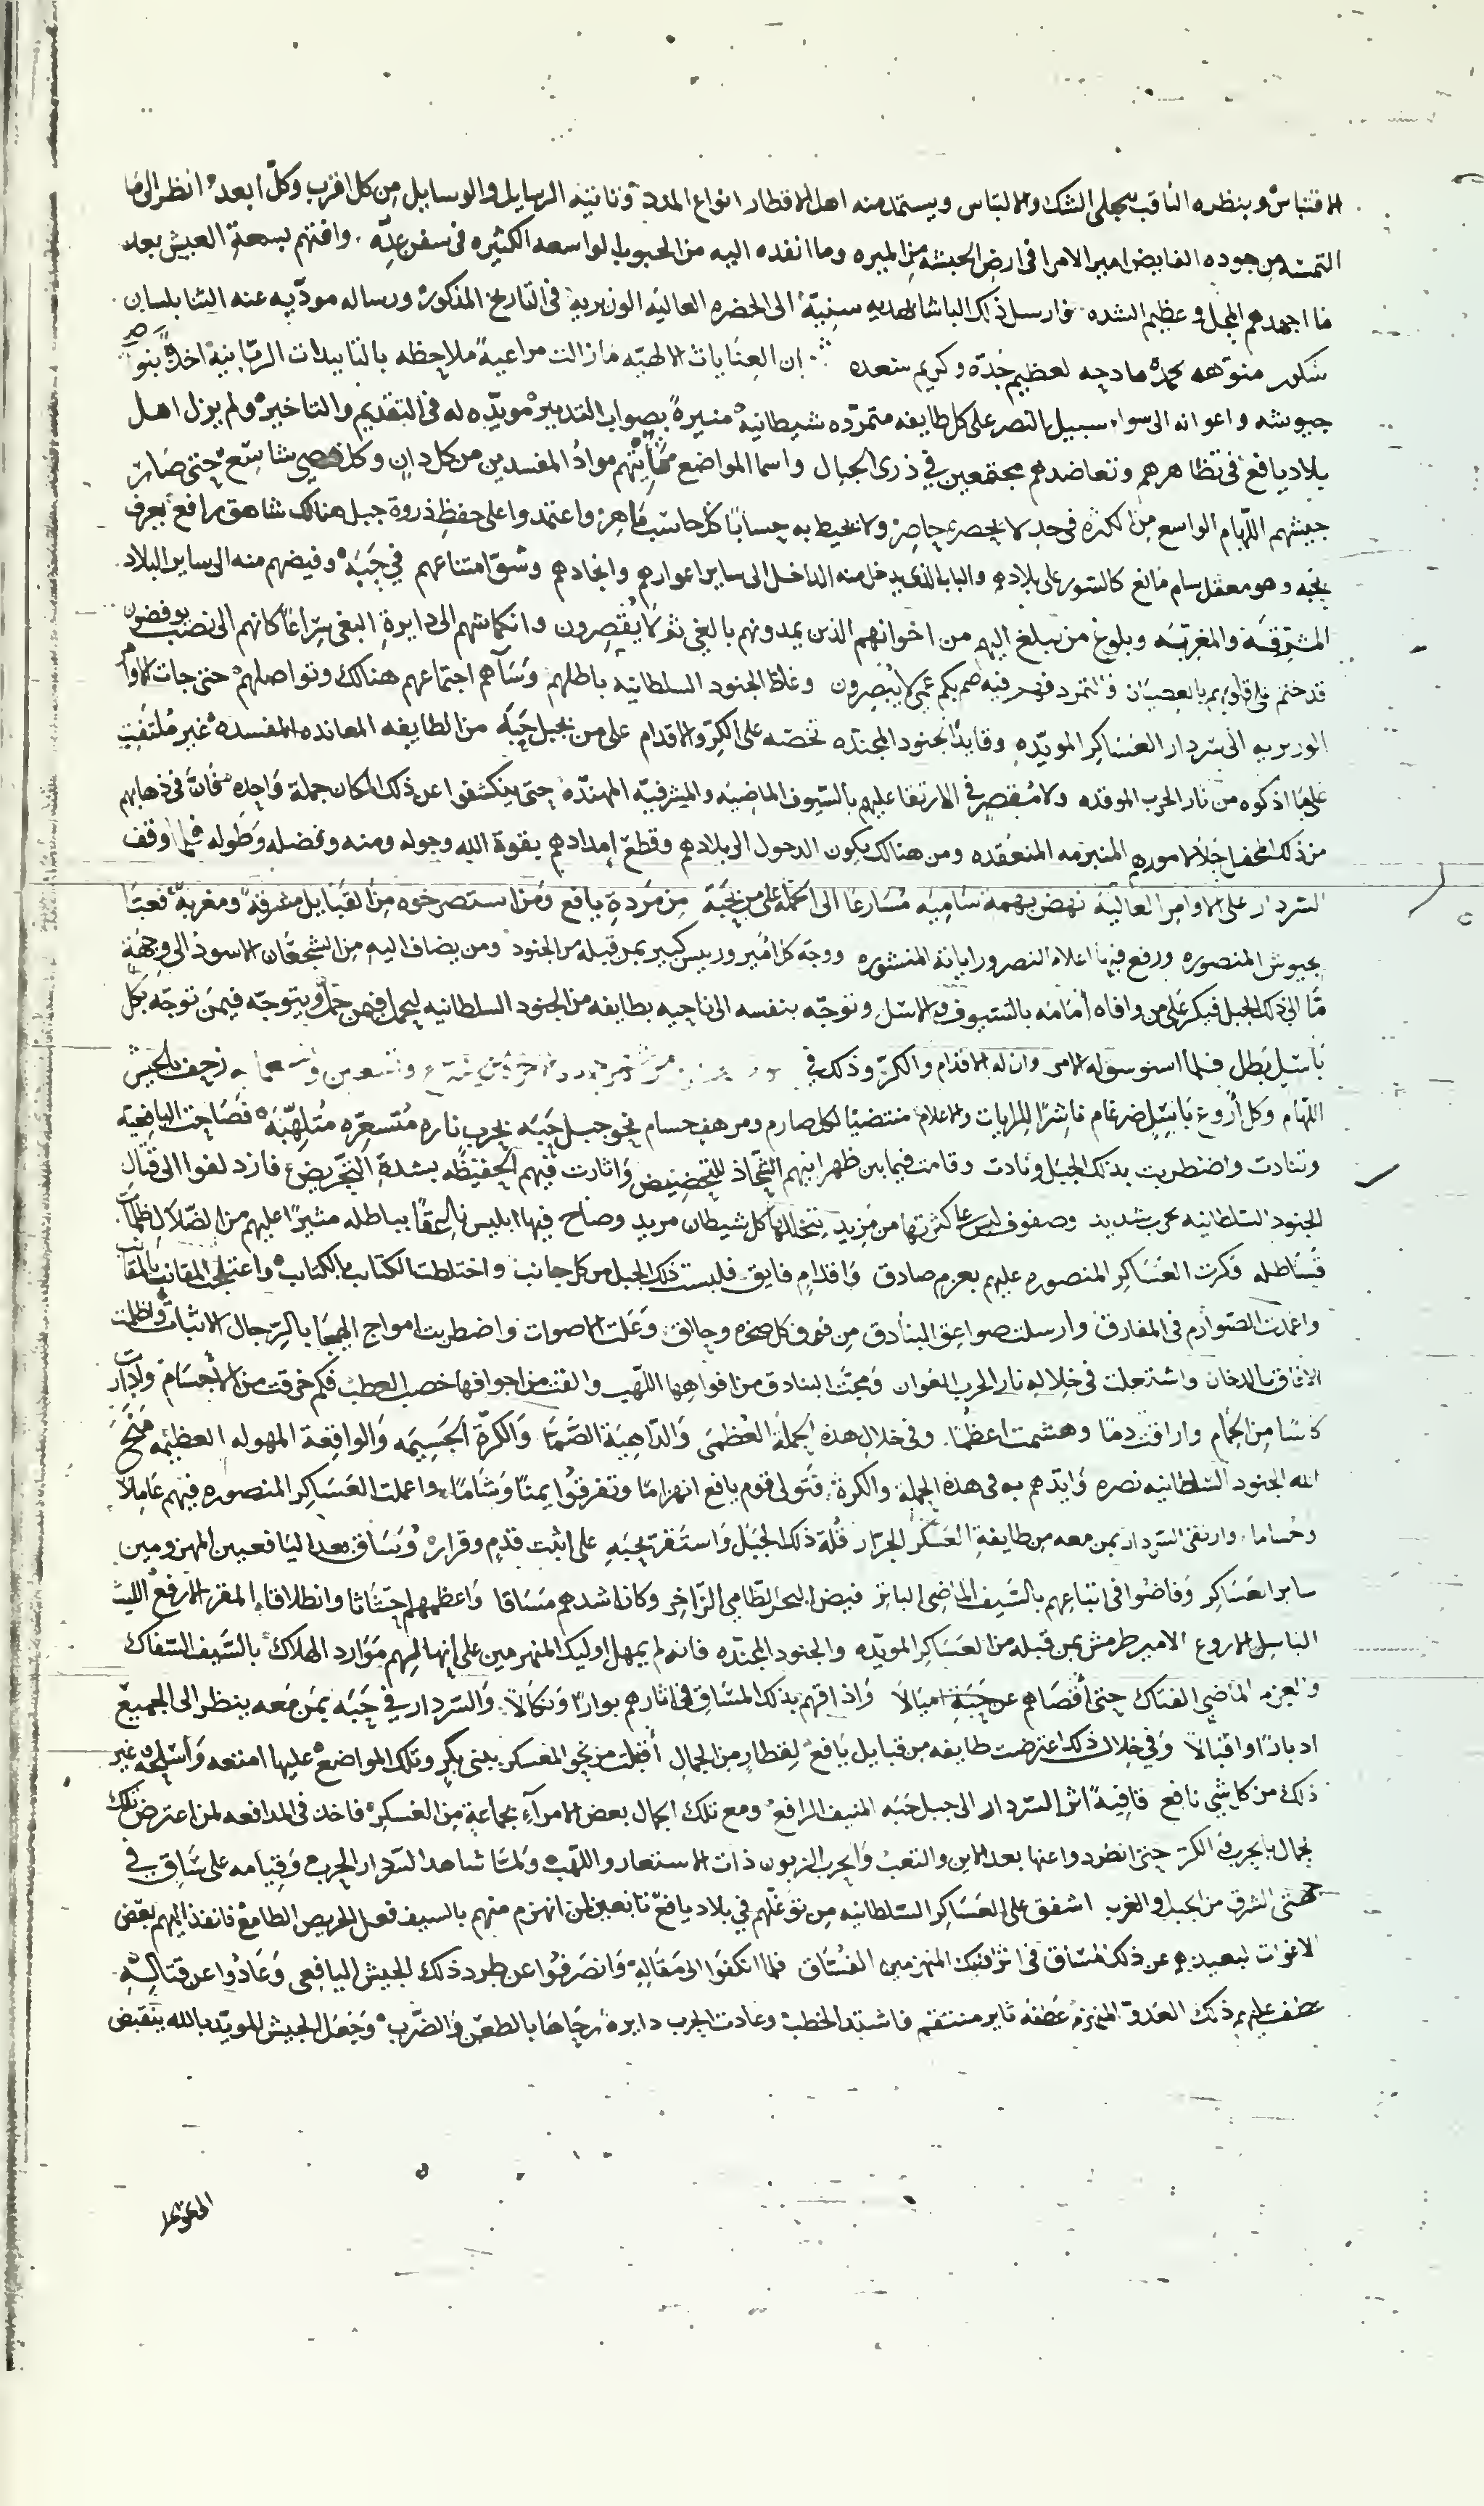 الاقتباس وبنظره الثاقب ينجلى الشك والالتباس ويستمد منه اهل الاقطار انواع المدد وتاتيه الرسايل والوسايل من كل اقرب وكل ابعد انظر الى ما
التمسه من جوده الفايض امير الامرا فى ارض الحبشه من الميره وما انفده اليه من الحبوب الواسعه الكثيره فى سفن عده وافتهم بسعة العيش بعد
ما اجهدهم المحل وعظيم الشده وارسل ذلك الباشا بهديه سنيّة الى الحضره العاليه الوزيريه فى التاريخ المذكور ورساله مودّيه عنه الثنا بلسان
شكور منوّهه بمحمده مادحه لعظيم جدّه وكريم سعده ان العنايات الالهيّه ما زالت مراعيةً ملاحظه بالتاييدات الربّانيه اخذةً بنواصى
جيوشه واعوانه الى سواء سبيل النصر على كل طايفه متمرّده شيطانيه منيرةً بصواب التدبير مويّده له فى التقديم والتاخير ولم يزل اهل
بلاد يافع فى تظاهرهم وتعاضدهم مجتمعين في ذرى الجبال واسما المواضع تاتيهم موادّ المفسدين من كل دانٍ وكل قصيٍ شاسع حتى صار
جيشهم اللّهام الواسع من الكثره فى حدٍ لا يحصره حاصر ولا يحيط به حسابًا كل حاسب ماهر واعتمدوا على حفظ ذروة جبل هنالك شاهق رافع يعرف
بحَبَه وهو معقل سام مانع كالسّور على بلادهم والباب الذى يدخل منه الداخل الى ساير اغوارهم وانجادهم وشقّ امتناعهم في حَبَه وفيضهم منه الى ساير البلاد
المشرقيّه والمغربيّه وبلوغ من يبلغ اليهم من اخوانهم الذين يمدونهم بالغي ثم لا يُقصِرون وانكماشهم الى دايرة البغى سِرَاعًا كانهم الى نصب يوفضون
قد ختم على قلوبهم بالعصيان والتمرد فهم فيه صم بكم عمي لا يُبصِرون وغاظ الجنود السلطانيه باطلهم وسَآهم اجتماعهم هنالك وتواصلهم حتى جات الاوامر
الوزيريه الى سردار العَسَاكِر المويّده وقايد الجنود المجنّده تحضّه على الكَرّ والاقدام على من بجبل حَبَه من الطايفه المعانده المفسده غير مُلتفِتٍ
على ما اذكوه من نار الحرب الموقده ولا مُقصرٍ في الارتقا عليهم بالسّيوف الماضيه والمشرفيّه المهنّده حتى ينكشفوا عن ذلك المكان جملة واحده فانّ فى ذهابهم
من ذلك المحل انحلال امورهم المنبرمه المنعقده ومن هنالك يكون الدخول الى بلادهم وقطع امدادهم بقوة الله وحوله ومنه وبفضله وطَوله فلما وقف
السّردار على الاوامر العاليه نهض بهمة سَاميه مُسَارعًا الى الحمله على من بحَبَة من مَرَدةِ يافع ومن استصرخوه من القبَايل مشرقةً ومغربةً فعبّا
جيوش المنصوره ورفع فيها اعلام النصر وراياته المنشوره ووجّه كل امير ورييس كبير بمن قبله من الجنود ومن يضاف اليه من الشجعان الاسود الى وجهَة
مّا الى ذلك الجبل فيكر على من وافاه أمَامَه بالسّيوف والاسَل وتوجّه بنفسه الى ناحيه بطايفه من الجنود السلطانيه ليحمل فيهن حمل ويتوجّه فيمن توجّه بكل
بَاسِل بَطل فلما استوسق له الامر وان له الاقدام والكرّ وذلك في وتسعين وتسعمايه زحف بالجيش
اللهام وكل أروع بَاسِلٍ ضرغام ناشِرًا للرايات والاعلام منتضيًا لكل صارم ومرهف حسام نحو جبل حَبَه بحرب ناره مُتسعِرّه مُتلهّبَه فصَاحت اليافعيه
وتنادت واضطربت بذلك الجبَل ونادت وقامت فيما بين ظهرانيهم الشّحّاذ للتحضيض واثارت فيهم الحفيظه بشدة التّحريض فازدلفوا الى قتال
الجنود السلطانيه بحرب شديد وصفوف ليس على كثرتها من مَزيد يتخللها كل شيطان مريد وصاح فيها ابليس ناعقًا بباطله مثيرًا عليهم من الضّلال ظلمات
قساطله فكرت العَسَاكِر المنصوره عليهم بعزم صادق واقدام فايق فلبست ذلك الجبل من كل جانب واختلطت الكتاب بالكتايب واعتلجت المقانب بالمقانب
واغمدت الصّوارم فى المفارق وارسلت صواعق البنادق من فوق كل صخره وحالق وعَلت الاصوات واضطربت امواج الهيجا بالرّجال الاثبات واظلمت
الافاق بالدخان واشتعلت فى خلاله نار الحرب العَوان ومجّت البنادق من افواهها اللّهب والقت من اجوافها خصب العطب فكم خرقت من الاجسَام وادارت
كاسًا من الحِمام واراقت دمًا وهشمت اعظُمًا وفى خلال هذه الحملة العُظمَى والدّاهيَة الصّمّا والكرّة الجَسِيمه والواقِعة المهوله العظيمه مَنَحَ
الله الجنود السّلطانيه نصره وايّدهم به فى هذه الحملة والكرة فتولّى قوم يافع انهزامًا وتفرقُوا يمنًا وشَامًا واعملت العَسَاكِر المنصوره فيهم عَامِلًا
وحُسَاما وارتقى السّردار بمن معه من طايفة العسكر الجرّار قُلّة ذلك الجبَل واستقرّ بحَبَه على اثبت قدم وقرار وسَاق بعد اليَافعيين المهزومين
ساير العسَاكِر وفاضُوا فى اتباعهم بالسّيف الماضى الباتر فيض البحر الطّامى الزّاخر وكان اشدهم مَسَاقا وَاعظمهم احتثاثا وانطلاقا المقر الارفع الليث
الباسِل الاروع الامير طرمش بمن قبله من العسَاكِر المويّده والجنود المجنّده فانه لم يمهل اوليك المنهزمين على إنهالهم مَوَارد الهلاك بالسَيف السّفاك
والعزم الماضي الفتاك حتى أقصَاهم عن حَبَة اميالًا وَاذاقهم بذلك المسَاق فى اثارهم بوارًا ونكالًا والسّردار في حَبَه بمَن مَعَه ينظر الى الجميع
ادبارًا واقبالًا وفي خلال ذلك اعترضت طايفه من قبايل يافع لقطارٍ من الجمال أقبلت من نحو المعسكر ببنى بكر وتلك المواضع عليها امتعه وَاسْلحه غير
ذلك من كل شي نافع قافيةً اثر السّردار الى جبل حَبَه المنيف الرافع ومع تلك الجمال بعض الامرآء بجماعةٍ من العَسكر فاخذ فى المدافعه لمن اعترض تلك
الجمال بالحرب والكرّ حتى انطردوا عنها بعد الاين والتعب والحرب الزبون ذات الاستعار واللّهب ولمّا شاهد السّردار الحرب وقيامه على سَاق فى
جهتى الشرق من الجبل والغرب اشفق على العَسَاكر السّلطانيه من توغّلهم في بلاد يافع تابعين لمن انهزم منهم بالسيف فعل الحريص الطامع فانفذ اليهم بَعض
الاغوات ليعيدهم عن ذلك المسَاق فى اثر اوليك المنهزمين الفُسّاق فلما انكفوا الى مَقَاله وَانصَرفُوا عن طرد ذلك الجيش اليافعى وعَادُوا عن قتاله
عطف عليهم ذلك العدوّ المنهزم عَطفة ثاير منتقم فاشتد الخطب وعادت الحرب دايرة رحَاهَا بالطعن والضّرب وجَعَل الجيش المويّد بالله ينقبض